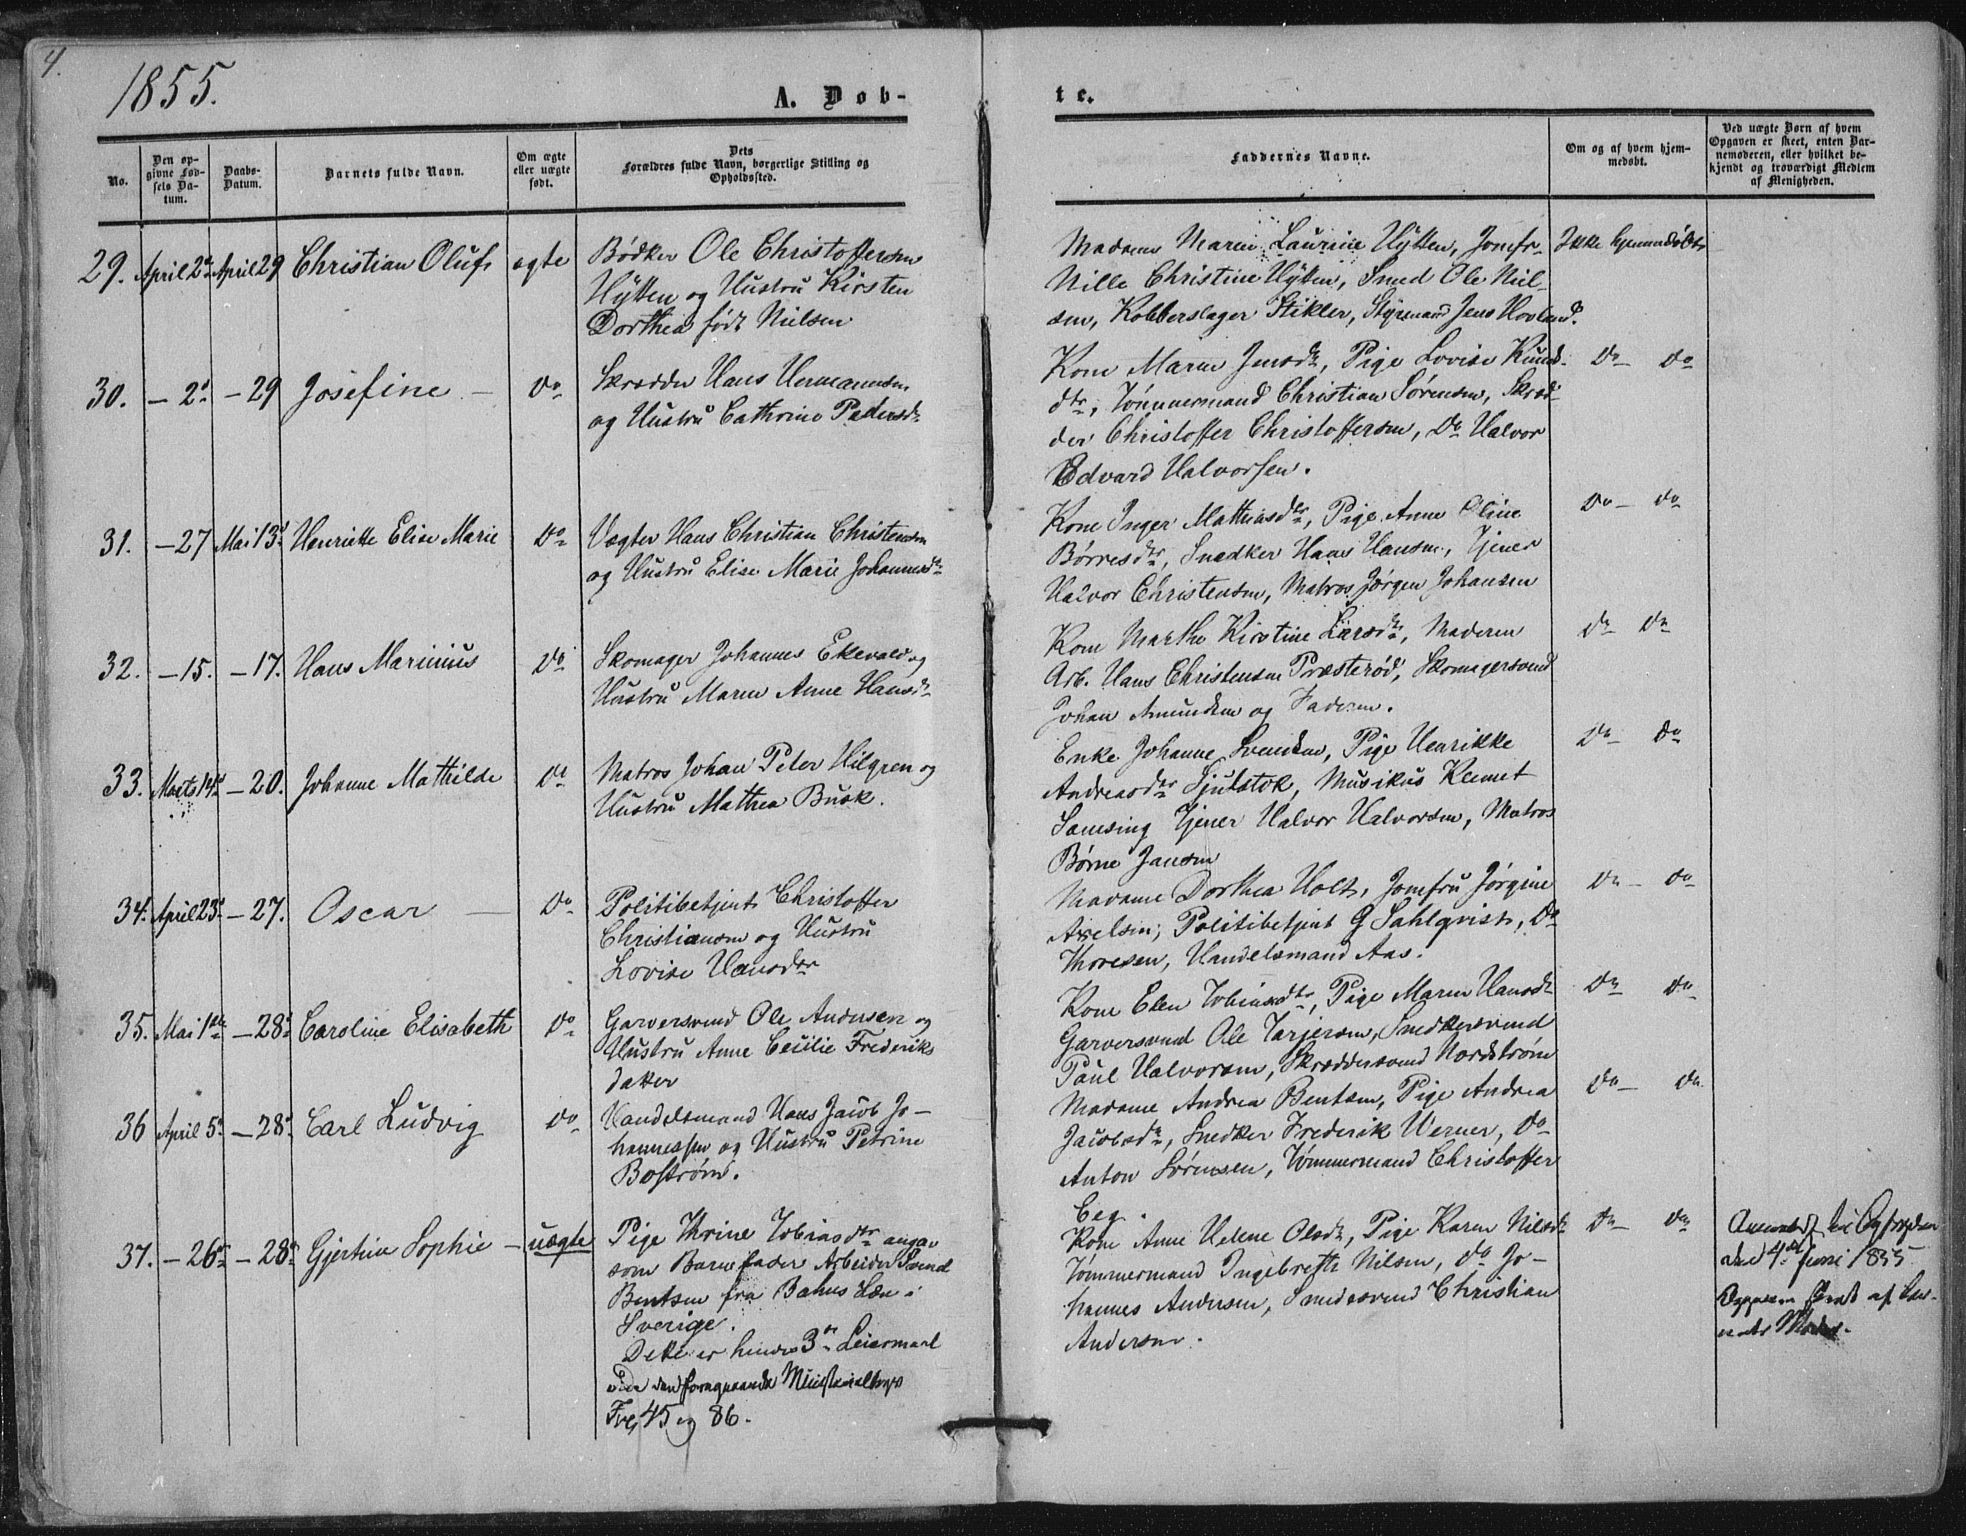 4.
1855.
A. Døb-
te.
No.
Den op-
givne Fød-
sels Da-
tum.
Daabs-
Datum.
Barnets fulde Navn.
Om ægte
eller uægte
født.
Dets
Forældres fulde Navn, borgerlige Stilling og
Opholdssted.
Faddernes Navne.
Om og af hvem hjem-
medøbt.
Ved uægte Børn af hvem
Opgaven er skeet, enten Bar-
nemoderen, eller hvilket be-
kjendt og troværdigt Medlem
af Menigheden.
29. April 2den April 29 Christian Olufs ægte
Bødker Ole Christoffersen
Hÿtten og Hustru Kirsten
Dorthea født Nielsen
Madame Maren Laurine Hÿtten, Jomfr.
Nille Christine Hÿtten, Smed Ole Niel-
sen, Kobberslager Stikler, Styrmand Jens Hovland.
Ikke hjemmedøbt
30. - 2d - 29 Josefine - Do
Skrædder Hans Hermansen
og Hustru Cathrine Pedersdr
Kone Maren Jensdr, Pige Lovise Knuds-
dtr, Tømmermand Christian Sørensen, Skræd-
der Christoffer Christoffersen, Do Halvor
Edvard Halvorsen.
Do - Do
31. - 27 Mai 13d Henriette Elise Marie Do
Vægter Hans Christian Christensen
og Hustru Elise Marie Johannesdr
Kone Inger Mathiasdtr, Pige Anne Oline
Børresdtr, Snedker Hans Hansen, Tjener
Halvor Christensen, Matros Jørgen Johansen
Do - Do
32. - 15. - 17. Hans Marinius Do
Skomager Johannes Ekevald og
Hustru Maren Anne Hansdr
Kone Marthe Kirstine Larsdtr, Moderen
Arb. Hans Christensen Præsterød, Skomagersvend
Johan Amundsen og Faderen.
Do Do
33. Marts 14d - 20. Johanne Mathilde Do
Matros Johan Peter Hilgren og
Hustru Mathea Busk.
Enke Johanne Svendsen, Pige Henrikke
Andreasdtr, Musikus
Samsing Tjener Halvor Halvorsen, Matros
Børne Jansen
Do - Do
34. April 23d - 27. Oscar - Do
Politibetjent Christoffer
Christiansen og Hustru
Lovise Hansdtr
Madame Dorthea Holt, Jomfru Jørgine
Axelsen, Politibetjent G Sahlqvist, Do
Thoresen, Handelsmand Aas.
Do - Do
35. Mai 1ste - 28d Caroline Elisabeth Do
Garversvend Ole Andersen og
Hustru Anne Cecilie Frederiks
datter
Kone Elen Tobiasdtr, Pige Maren Hansdr
Garversvend Ole Tarjersen, Snedkersvend
Paul Halvorsen, Skræddersvend Nordstrøm
Do Do
36 April 5d - 28d Carl Ludvig Do
Handelsmand Hans Jacob Jo-
hannessen og Hustru Petrine
Bostrøm.
Madame Andrea Bentsen, Pige Andrea
Jacobsdr, Snedker Frederik Werner, Do
Anton Sørensen, Tømmermand Christoffer
Eeg.
Do - Do
37. - 26de - 28d Gjertine Sophie - uægte
Pige Thrine Tobiasdtr angav
som Barnefader Arbeider Svend
Bentsen fra Bahus Læn i
Sverige.
Dette er hendes 3die Leiermaal
vide den foregaaende Ministerialbogs
45 og 86.
Kone Anne Helene Olsdr, Pige Karen Nilsdr
Tømmermand Ingebreth Nilsen, do Jo-
hannes Andersen, Smedesvend Christian
Andersen.
Do - Do
Anmeldt
den 4de 1855
af Bar-
nets Moder.